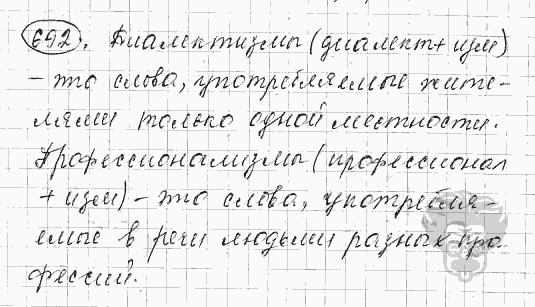 692. Диалектизмы (диалект + изм)
- это слова, употребляемые жите-
лями только одной местности.
Профессионализмы (профессионал
+ изм) - это слова, употребля-
емые в речи людьми разных про
фессий.